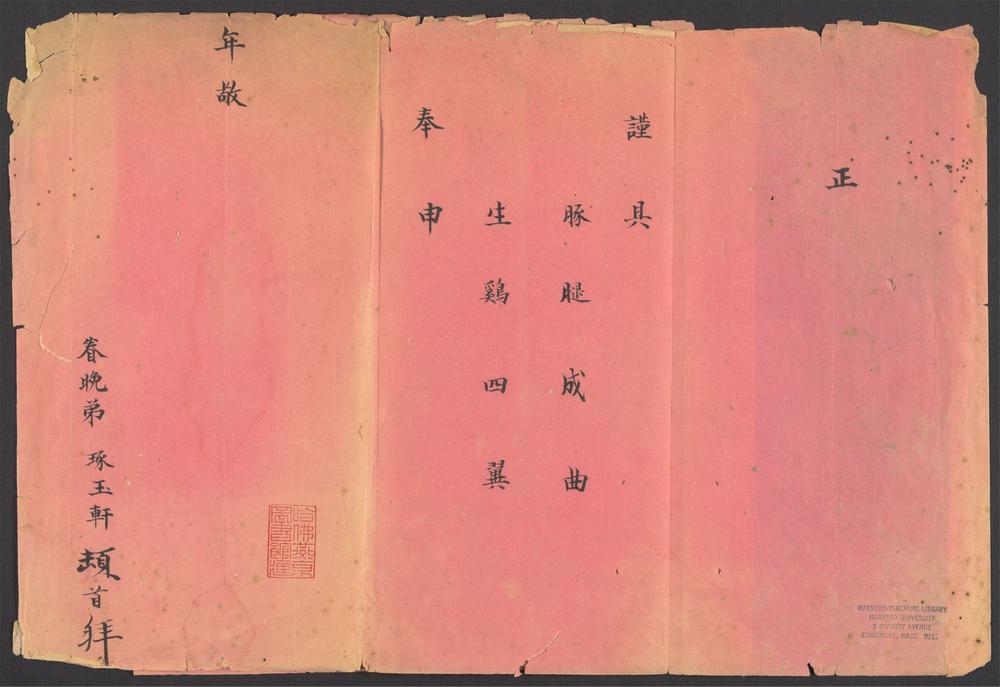 正
謹具
豚腿成曲
生鷄四翼
奉申
年敬
眷晚弟 琢玉軒 頓首拜
哈佛燕京
圖書館藏
HARVARD-YENCHING LIBRARY
HARVARD UNIVERSITY
2 DIVINITY AVENUE
CAMBRIDGE, MASS.